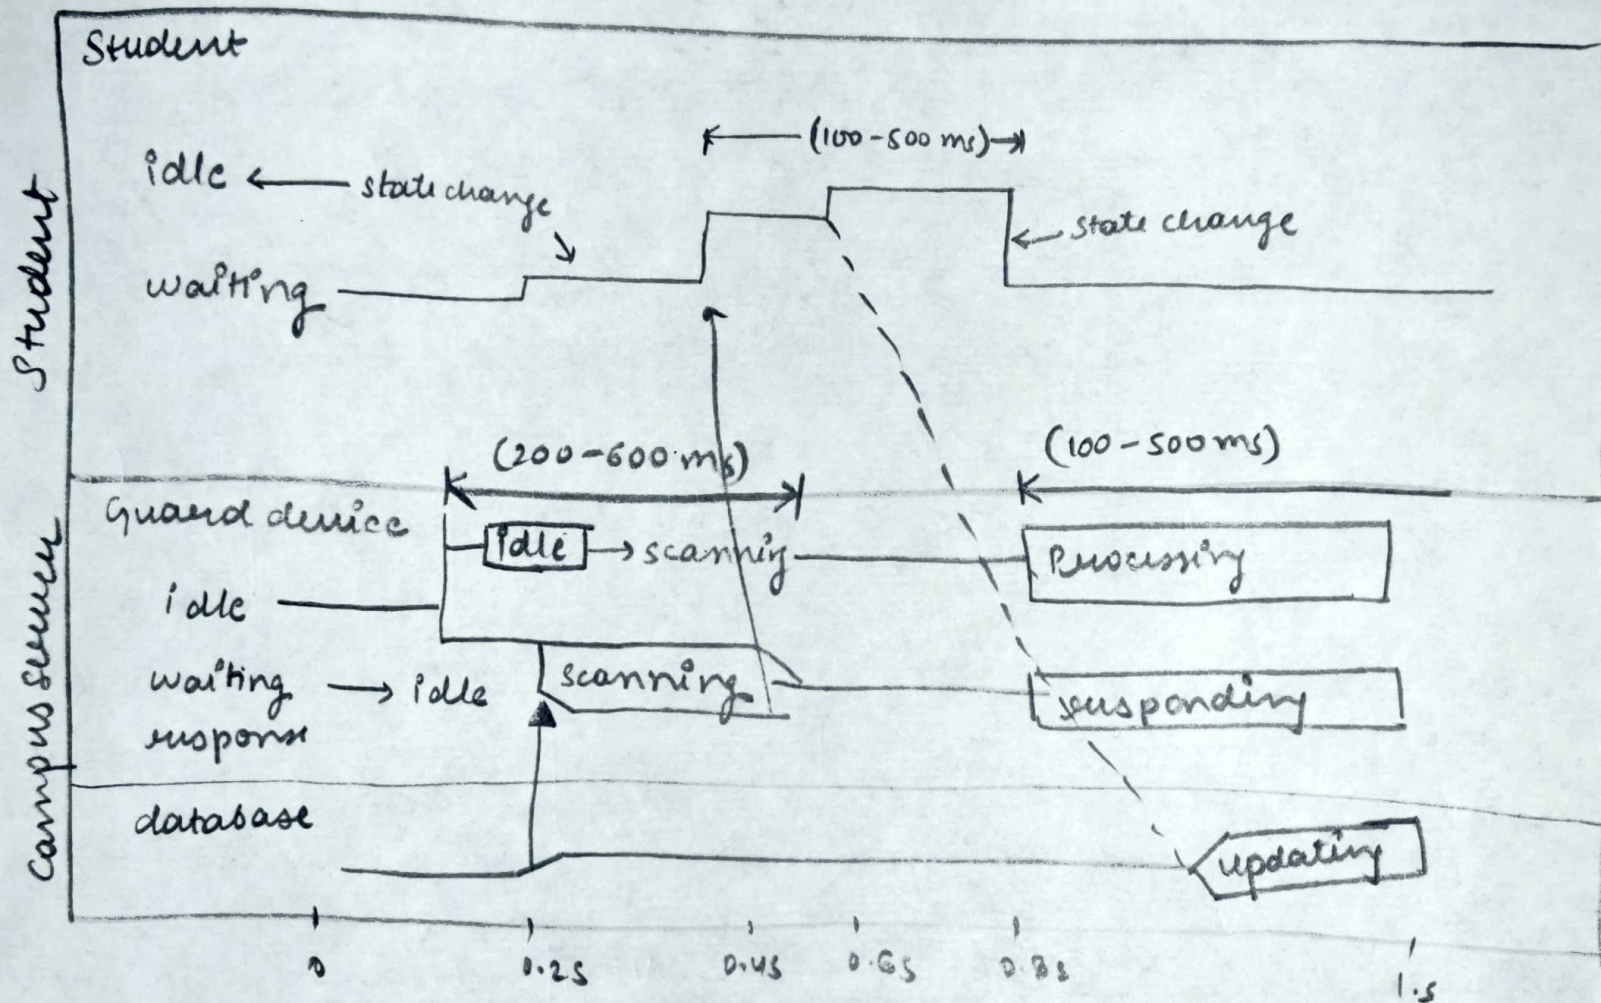 Student
Student
(100-500 ms)
idle ← state change
← state change
waiting
(200-600 ms)
(100-500 ms)
Campus Server
Guard device
idle → scanning
Processing
idle
waiting → idle
response
scanning
responding
database
updating
0
0.2s
0.4s
0.6s
0.8s
1.s